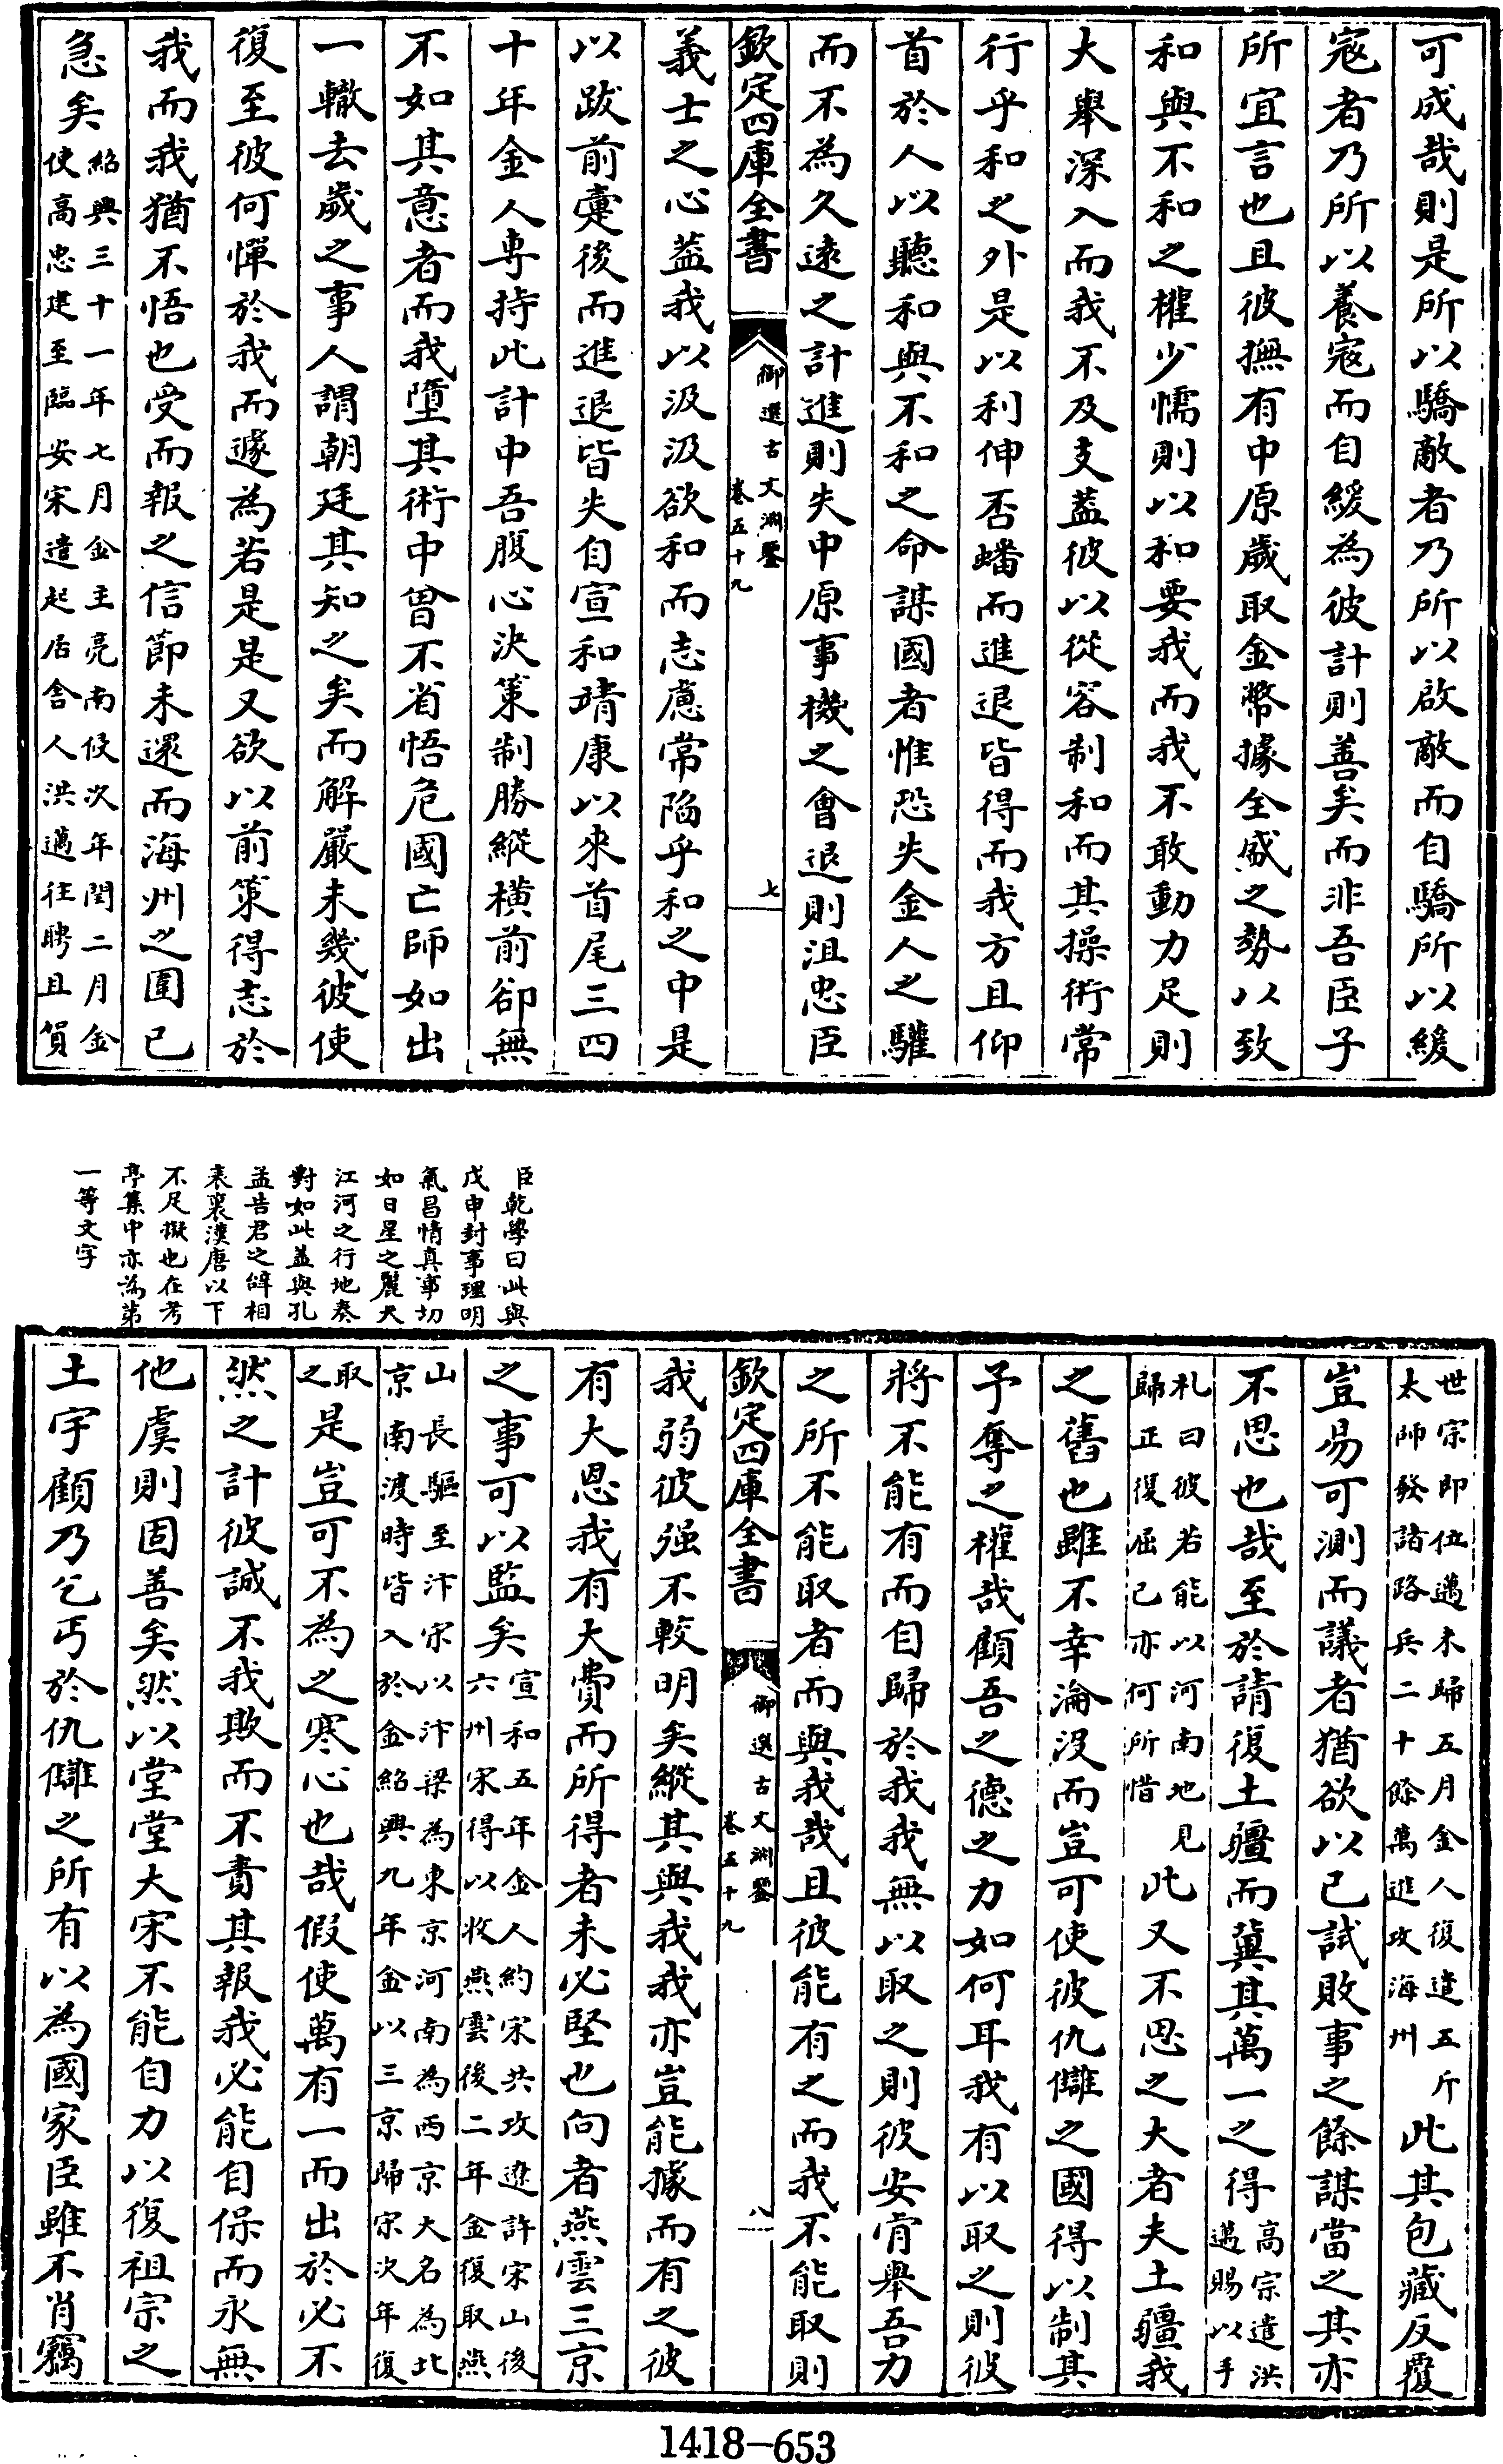 可成哉則是所以驕敵者乃所以啟敵而自驕所以緩
寇者乃所以養寇而自緩為彼計則善矣而非吾臣子
所宜言也且彼撫有中原歲取金幣據全盛之勢以致
和與不和之權少懦則以和要我而我不敢動力足則
大舉深入而我不及支蓋彼以從容制和而其操術常
行乎和之外是以利伸否蟠而進退皆得而我方且仰
首於人以聽和與不和之命謀國者惟恐失金人之驩
而不為久遠之計進則失中原事機之會退則沮忠臣
欽定四庫全書
御選古文淵鑒
卷五十九
七
義士之心蓋我以汲汲欲和而志慮常陷乎和之中是
以跋前疐後而進退皆失自宣和靖康以來首尾三四
十年金人専持此計中吾腹心決策制勝縱橫前卻無
不如其意者而我墮其術中曾不省悟危國亡師如出
一轍去歲之事人謂朝廷其知之矣而解嚴未幾彼使
復至彼何憚於我而遽為若是是又欲以前策得志於
我而我猶不悟也受而報之信節未還而海州之圍已
急矣
紹興三十一年七月金主亮南侵次年閏二月金
使高忠建至臨安宋遣起居舍人洪邁往聘且賀
臣乾學曰此與
戊申封事理明
氣昌情真事切
如日星之麗天
江河之行地奏
對如此蓋與孔
孟告君之辭相
表裏漢唐以下
不足擬也在考
亭集中亦為第
一等文字
世宗即位邁未歸五月金人復遣五斤
太師發諸路兵二十餘萬進攻海州
此其包藏反覆
豈易可測而議者猶欲以已試敗事之餘謀當之其亦
不思也哉至於請復土疆而冀其萬一之得
高宗遣洪
邁賜以手
札曰彼若能以河南地見
歸正復屈己亦何所惜
此又不思之大者夫土疆我
之舊也雖不幸淪沒而豈可使彼仇讎之國得以制其
予奪之權哉顧吾之德之力如何耳我有以取之則彼
將不能有而自歸於我我無以取之則彼安肯舉吾力
之所不能取者而與我哉且彼能有之而我不能取則
欽定四庫全書
御選古文淵鑒
卷五十九
八
我弱彼强不較明矣縱其與我我亦豈能據而有之彼
有大恩我有大費而所得者未必堅也向者燕雲三京
之事可以監矣
宣和五年金人約宋共攻遼許宋山後
六州宋得以收燕雲後二年金復取燕
山長驅至汴宋以汴梁為東京河南為西京大名為北
京南渡時皆入於金紹興九年金以三京歸宋次年復
取
之
是豈可不為之寒心也哉假使萬有一而出於必不
然之計彼誠不我欺而不責其報我必能自保而永無
他虞則固善矣然以堂堂大宋不能自力以復祖宗之
土宇顧乃乞丐於仇讎之所有以為國家臣雖不肖竊
1418-653